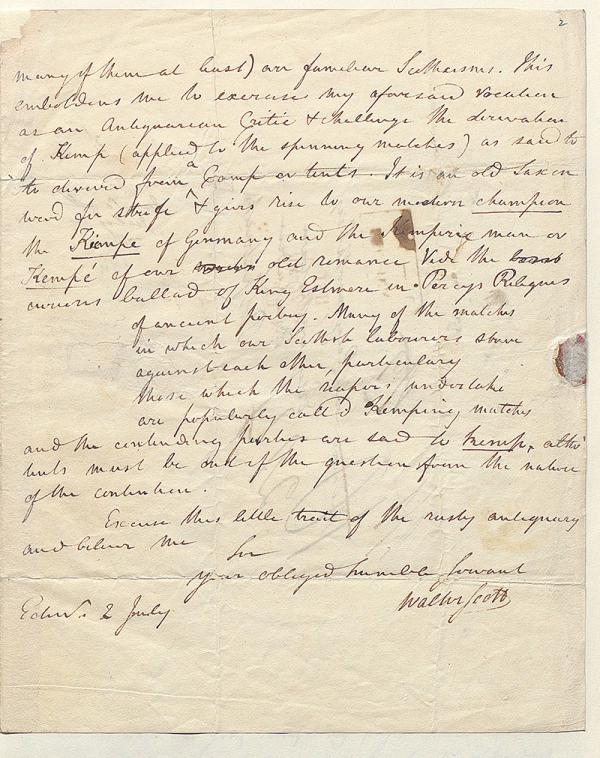 2
many of them at least) are familiar Scotticisms. This
emboldens me to exercise my aforesaid vocation
as an Antiquarian Critic & challenge the derivation
of Kemp (applied to the spinning matches) as said to
to derived from a Camp or tents. It is an old Saxon
word for strife & gives rise to our modern champion
the Kempe of Germany and the Kemperie man or
Kempé of our old romance Vide the
curious ballad of King Estmere in Percys Reliques
of ancient poetry. Many of the matches
in which our Scottish labourers strove
against each other, particularly
those which the reapers undertake
are popularly calld Kemping matches
and the contending parties are said to kemp, altho
tents must be out of the question from the nature
of the contention.
Excuse this little trait of the rusty antiquary
and believe me Sir
your obliged humble Servant
Walter Scott
Edinr. 2 July